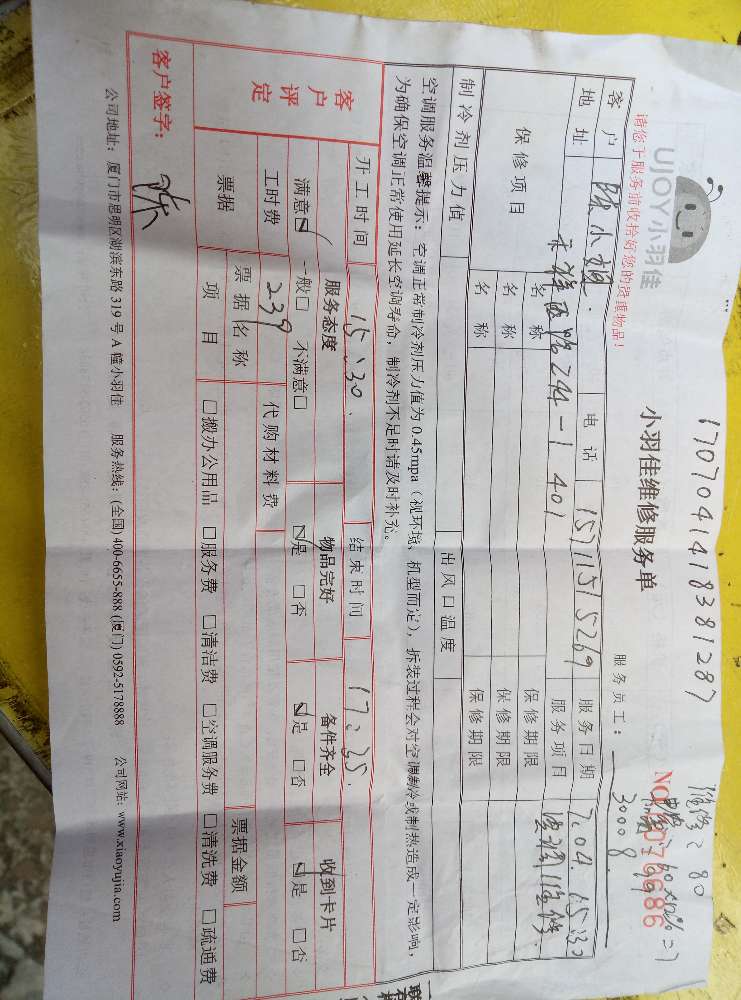 1707041418381287
维修：80
3000g
NO
UJOY小羽佳
请您于服务前收拾好您的贵重物品！
小羽佳维修服务单
服务员工：
客户 陈小姐. 电话 15711515269 服务日期 7.04. 15:30
地址 禾祥西路244-1 401 服务项目 空调维修.
保修项目 名称 保修期限
名称 保修期限
名称 保修期限
制冷剂压力值 出风口温度
空调服务温馨提示：空调正常制冷剂压力值为0.45mpa（视环境、机型而定），拆装过程会对空调制冷或制热造成一定影响，
为确保空调正常使用延长空调寿命，制冷剂不足时请及时补充。
开工时间 15:30. 结束时间 17:35.
客户评定 服务态度 物品完好 备件齐全 收到卡片
满意☑ 一般□ 不满意□ ☑是 □否 ☑是 □否 ☑是 □否
工时费 239 代购材料费
票据 票据名称 票据金额
项目 □搬办公用品 □服务费 □清洁费 □空调服务费 □清洗费 □疏通费
客户签字： 陈
公司地址：厦门市思明区湖滨东路319号A幢小羽佳 服务热线：(全国) 400-6655-888 (厦门) 0592-5178888 公司网站：www.xiaoyujia.com